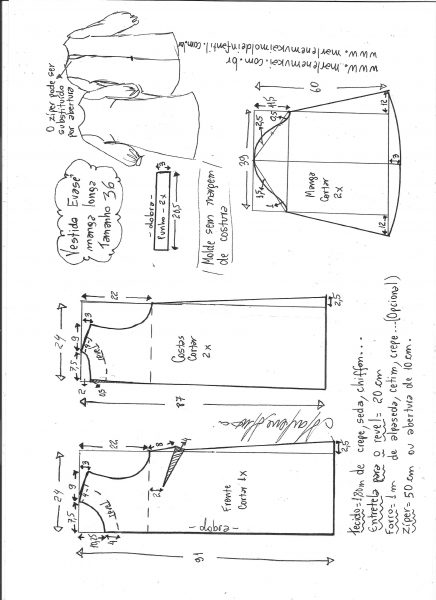 www.marlenemukai.com.br
www.marlenemukaimoldeinfantil.com.br
O zíper pode ser
substituído
por abertura
Vestido Evasê
manga longa
Tamanho 36
3
- dobra -
Punho - 2x
20,5
Molde sem margem
de costura
60
11,5
39
2,5
0,5
1,5
1
12
12
3
Manga
Cortar
2x
22
24
9
3
4-1
7,5
revel
2
0,5
2,5
87
Costas
Cortar
2x
22
24
9
3
4-1
7,5
revel
10,25
4
8
4
2
2,5
91
Frente
Cortar 1x
- dobra -
Tecido=1,80m de crepe, seda, chiffon...
Entretela para o revel= 20 cm
Forro=1m de alpaseda, cetim, crepe...(Opcional)
Zíper=50 cm ou abertura de 10 cm.